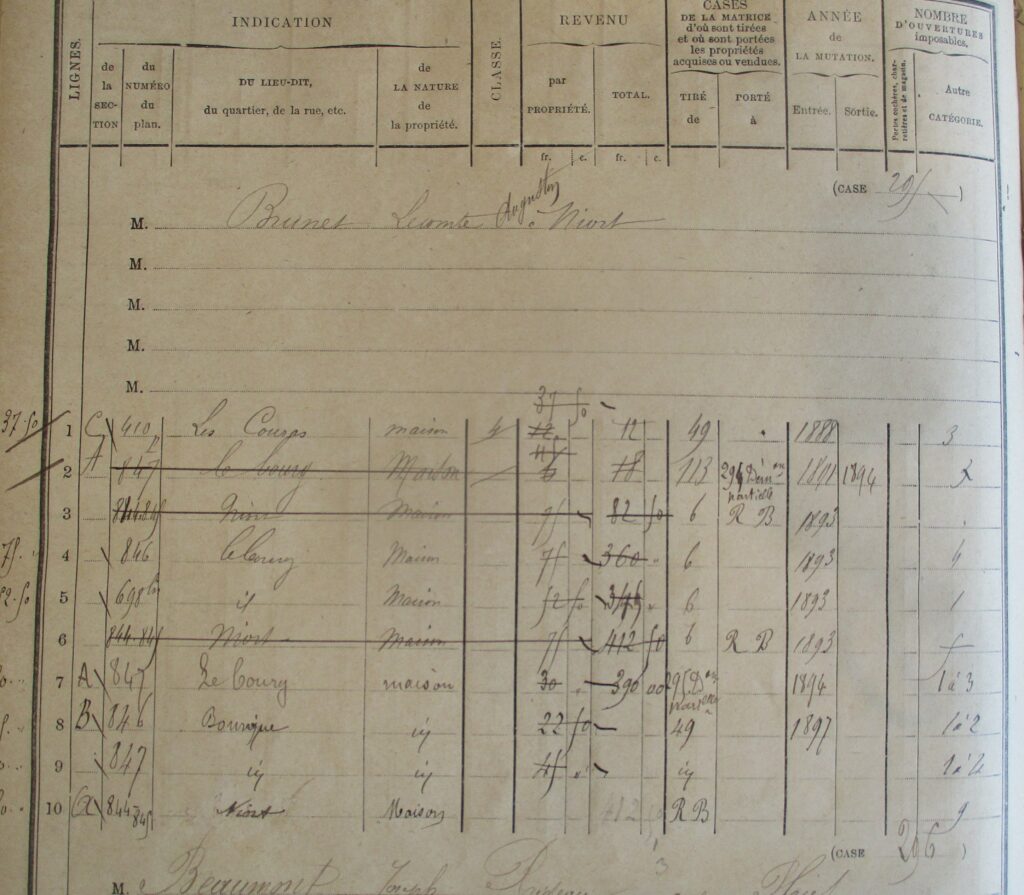 LIGNES. INDICATION CLASSE. REVENU CASES DE LA MATRICE d'où sont tirées et où sont portées les propriétés acquises ou vendues. ANNÉE de LA MUTATION. NOMBRE D'OUVERTURES imposables.
de la SECTION du NUMÉRO du plan. DU LIEU-DIT, du quartier, de la rue, etc. de LA NATURE de la propriété. par PROPRIÉTÉ. TOTAL. TIRÉ de PORTÉ à Entrée. Sortie. Portes cochères, charretières et de magasin. Autre CATÉGORIE.
fr. c. fr. c.
(CASE 295)
M. Brunet Lecomte Augustin à Niort
M.
M.
M.
M.
37 50
37-50 1 C 410 Les Coups maison 4 12 12 49 1888 3
2 A 847 le bourg Maison 18 113 295 Dém on partielle 1891 1894
3 844.845 Niort Maison 75 82 50 6 R B 1893
75 4 846 le bourg Maison 75 360 6 1893 4
52-50 5 698 bis id Maison 52 50 345 6 1893 1
6 844.845 Niort Maison 75 412 50 6 R B 1893
7 A 847 Le bourg maison 30 390 00 295 D on partielle 1894 1 à 3
8 B 846 id 22 50 49 1897 1 à 2
9 847 id id 45 id 1 à 2
10 844 845 Niort Maison 412 50 R B 9
(CASE 296)
M. Beaumont Joseph